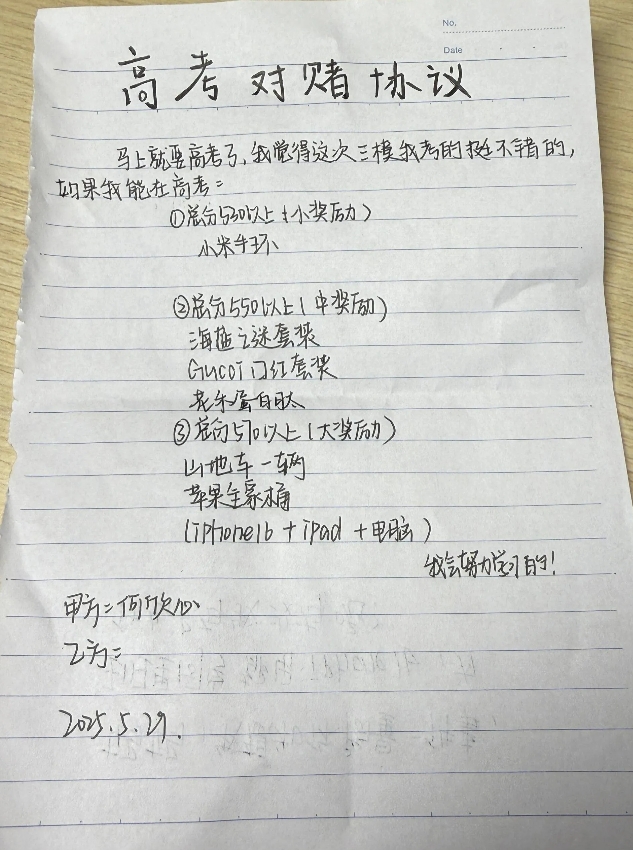 No.
Date
高考对赌协议
马上就要高考了,我觉得这次三模我考的挺不错的,
如果我能在高考:
①总分530以上(小奖励)
小米手环
②总分550以上(中奖励)
海蓝之谜套装
Gucci 口红套装
老年蛋白肽
③总分570以上(大奖励)
山地车一辆
苹果全家桶
(iphone16 + ipad + 电脑)
我会努力学习的!
甲方:何欣心
乙方:
2025.5.29.